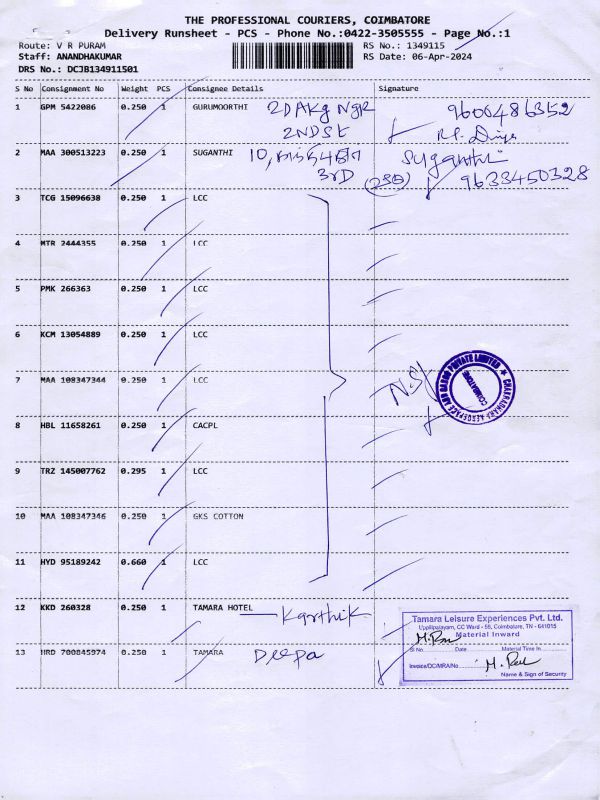 THE PROFESSIONAL COURIERS, COIMBATORE
Delivery Runsheet - PCS - Phone No.:0422-3505555 - Page No.:1
Route: V R PURAM RS No.: 1349115
Staff: ANANDHAKUMAR RS Date: 06-Apr-2024
DRS No.: DCJB134911501
S No Consignment No Weight PCS Consignee Details Signature
1 GPM 5422086 0.250 1 GURUMOORTHI 2D AKg Ngr 9600486352
2ND St
2 MAA 300513223 0.250 1 SUGANTHI 10, Suganthi
3RD 9633450328
3 TCG 15096638 0.250 1 LCC
4 MTR 2444355 0.250 1 LCC
5 PMK 266363 0.250 1 LCC
6 KCM 13054889 0.250 1 LCC
7 MAA 108347344 0.250 1 LCC
COIMBATORE
8 HBL 11658261 0.250 1 CACPL
9 TRZ 145007762 0.295 1 LCC
10 MAA 108347346 0.250 1 GKS COTTON
11 HYD 95189242 0.660 1 LCC
12 KKD 260328 0.250 1 TAMARA HOTEL Karthik
Tamara Leisure Experiences Pvt. Ltd.
Uppilipalayam, CC Ward - 56, Coimbatore, TN - 641015
Material Inward
13 HRD 700845974 0.250 1 TAMARA Deepa
Sl No. Date Material Time In
Invoice/DC/MRA/No.
Name & Sign of Security